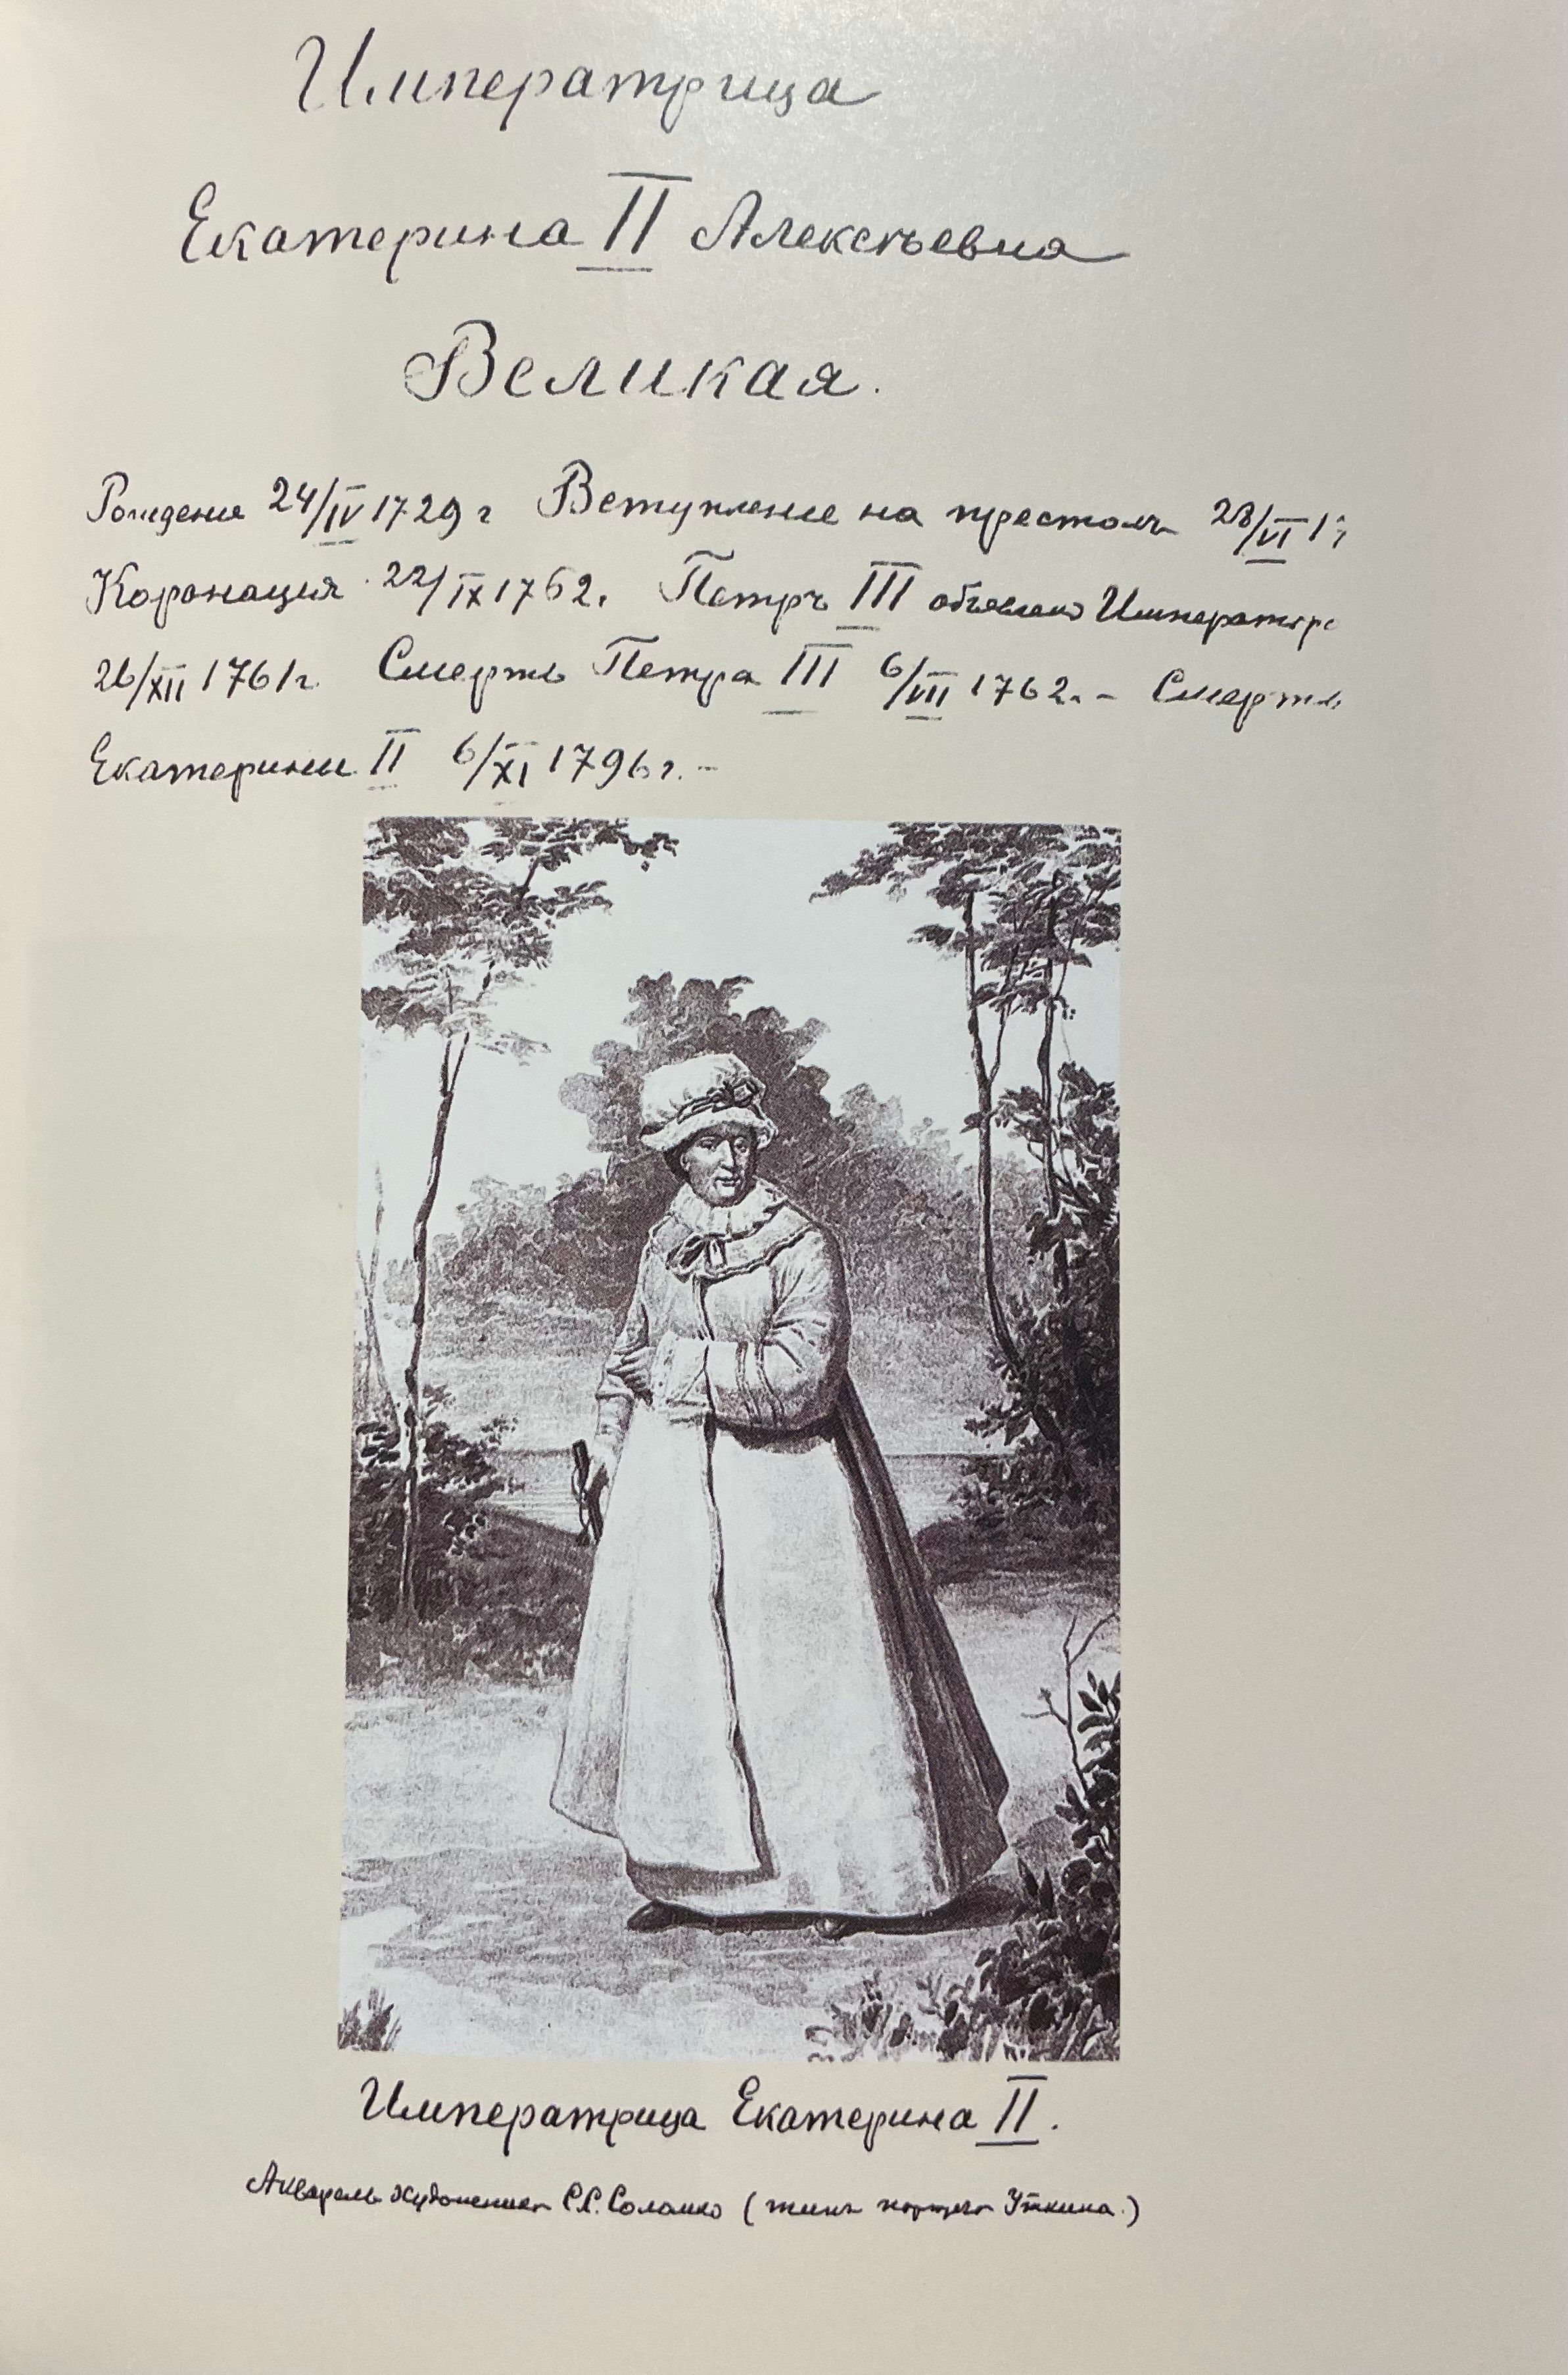 Императрица
Екатерина II Алексѣевна
Великая.
Рождение 24/IV 1729 г Вступление на престолъ 28/VI 17
Коронация 22/IX 1762. Петръ III объявленъ Императоро
26/XII 1761г. Смерть Петра III 6/VII 1762. - Смерть
Екатерины II 6/XI 1796г. -
Императрица Екатерина II.
Акварель художника С.С. Соломко (типъ портрета Уткина.)